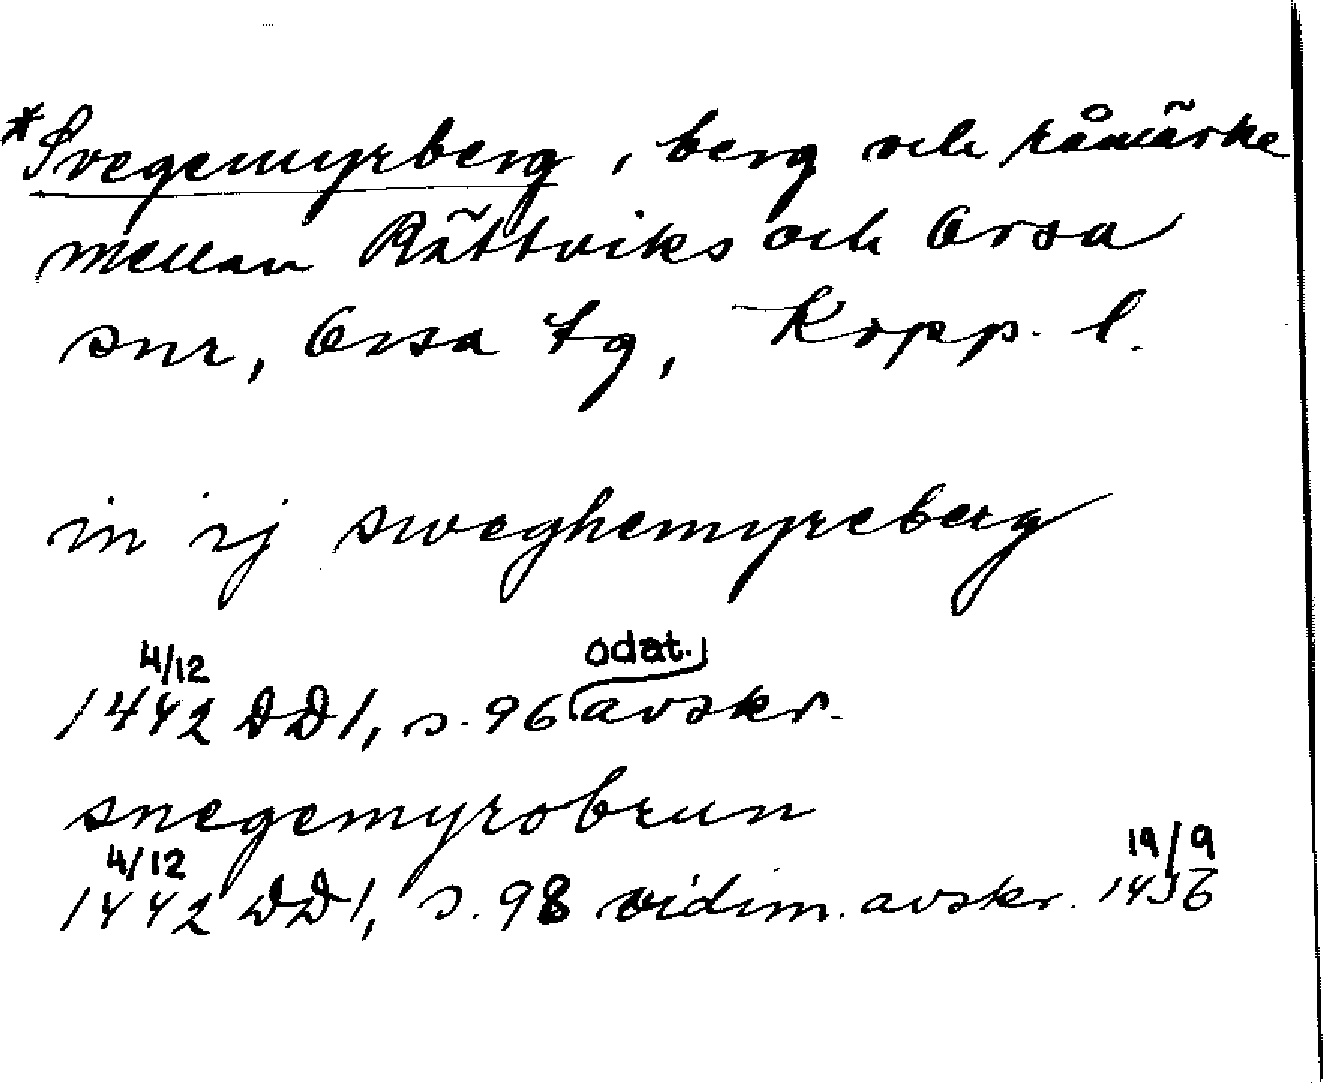 *Svegemyrberg, berg och råmärke
mellan Rättviks och Orsa
snr, Orsa tg, Kopp. l.
in ij sweghemyreberg
4/12 odat.
1442 DD1, s. 96 avskr.
snegemyrobrun
4/12 19/9
1442 DD1, s. 98 vidim. avskr. 1456